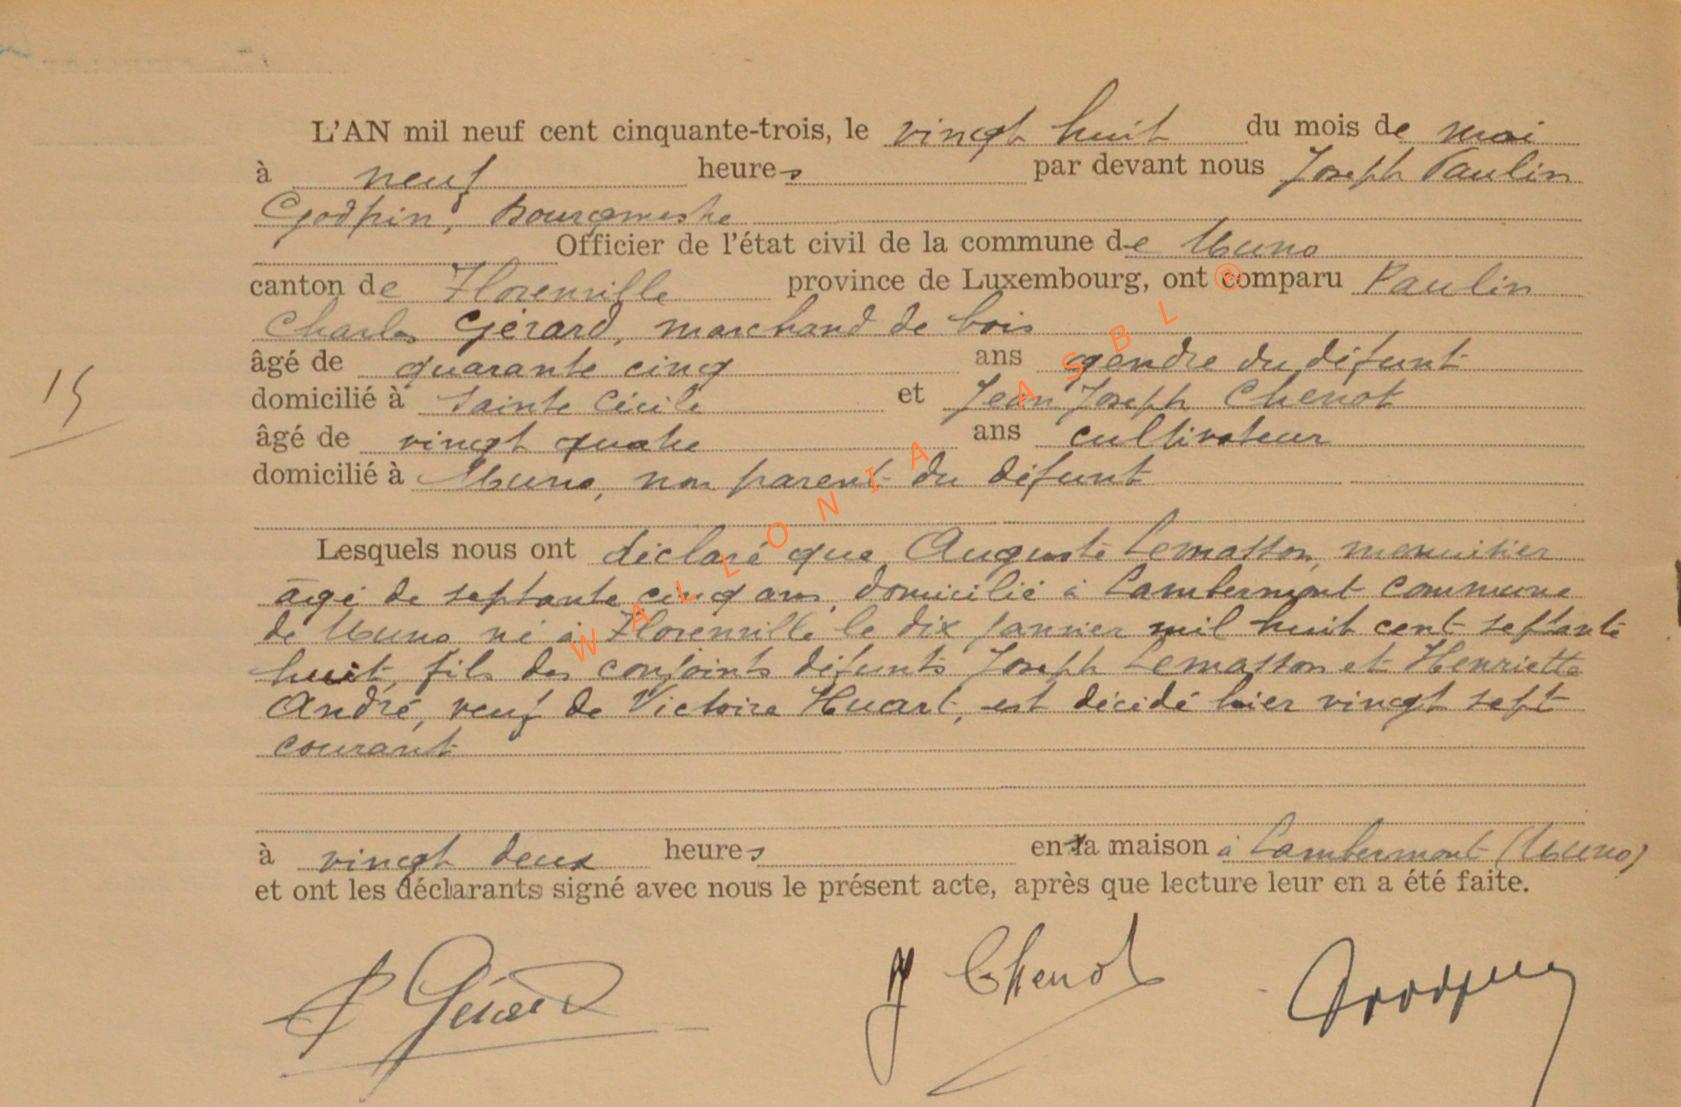 L'AN mil neuf cent cinquante-trois, le vingt huit du mois de mai
à neuf heures par devant nous Joseph Paulin
Godfrin, Bourgmestre
Officier de l'état civil de la commune de Muno
canton de Florenville province de Luxembourg, ont comparu Paulin
Charles Gérard, marchand de bois
âgé de quarante cinq ans gendre du défunt
domicilié à Sainte Cécile et Jean Joseph Chenot
âgé de vingt quatre ans cultivateur
domicilié à Muno, non parent du défunt
15
Lesquels nous ont déclaré que Auguste Lemasson, menuisier
âgé de septante cinq ans, domicilié à Lambermont commune
de Muno né à Florenville le dix janvier mil huit cent septante
huit, fils des conjoints défunts Joseph Lemasson et Henriette
André, veuf de Victoire Huart, est décédé hier vingt sept
courant
à vingt deux heures en sa maison à Lambermont (Muno)
et ont les déclarants signé avec nous le présent acte, après que lecture leur en a été faite.
P Gérard J Chenot
WALLONIA ASBL ®